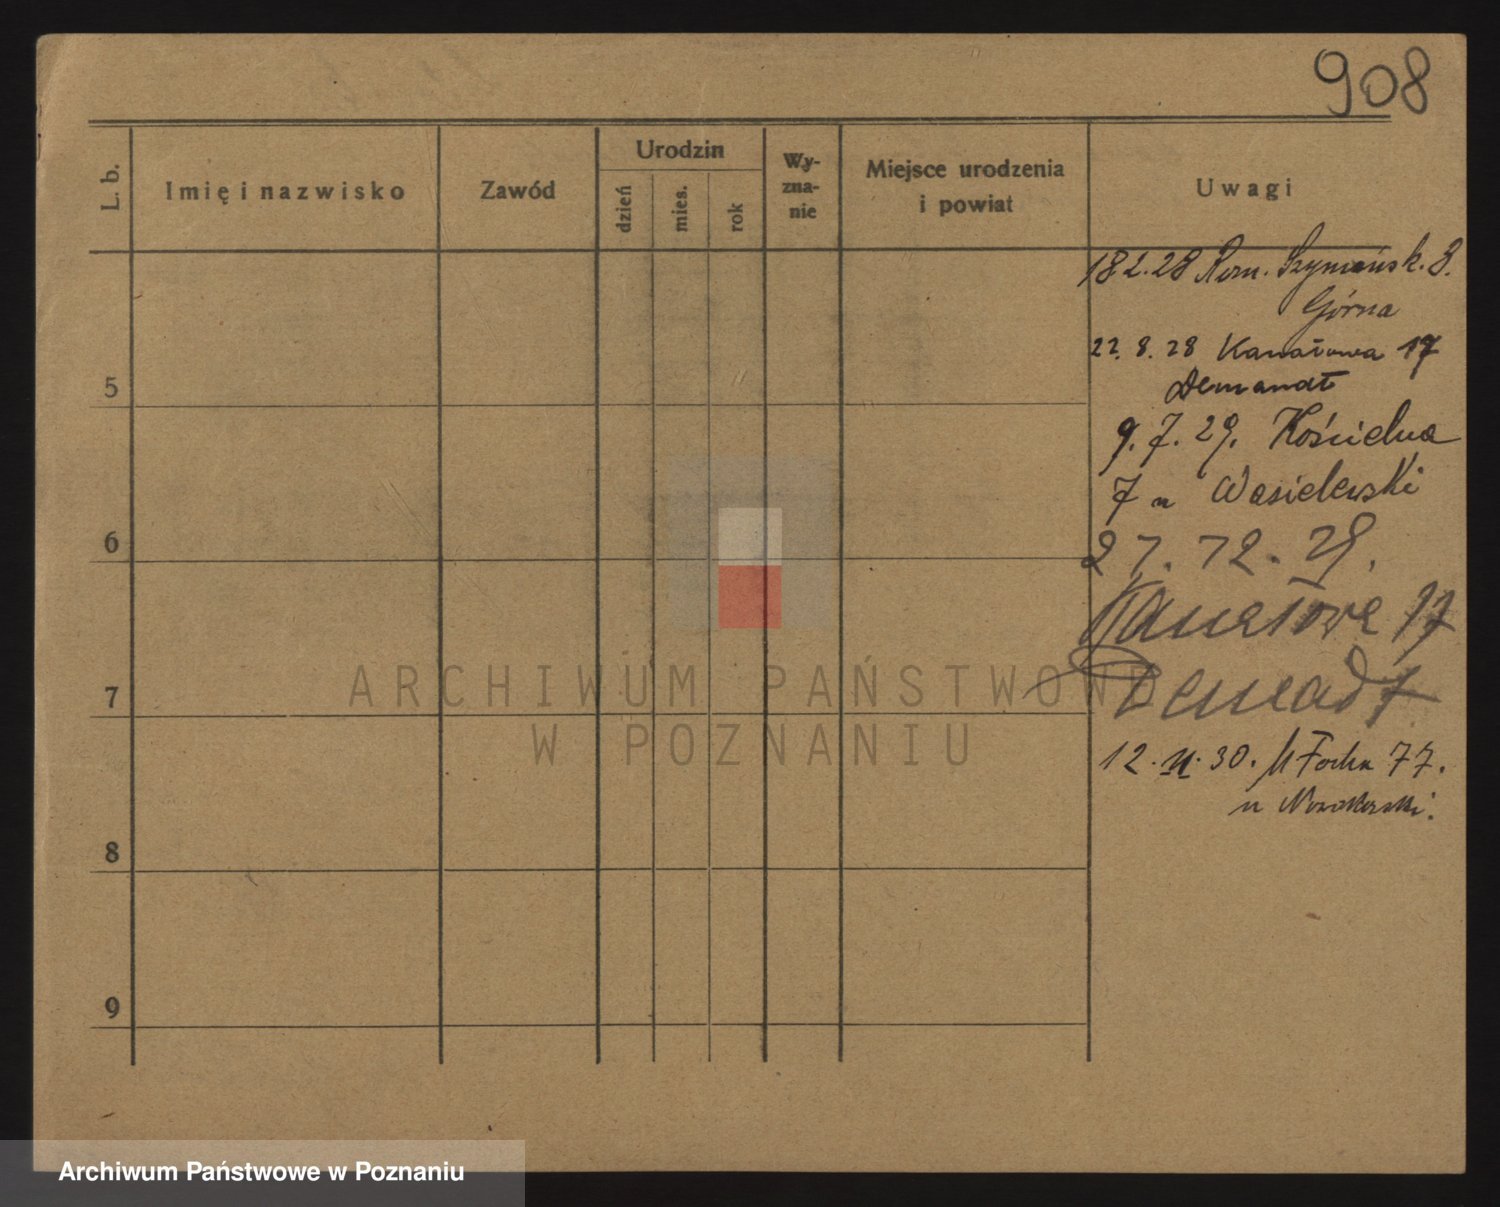 908
L. b.
Imię i nazwisko
Zawód
Urodzin
dzień
mies.
rok
Wy-
zna-
nie
Miejsce urodzenia
i powiat
Uwagi
18 2. 28 Rom. Szymańsk. 8.
Górna
22. 8. 28 Kanałowa 17
Demandt
5
9. 7. 29. Kościelna
7 u Wasielewski
6
27. 12. 29.
Kanałowa 17
Demandt
7
12. II. 30. M Focha 77.
u
8
9
ARCHIWUM PAŃSTWOWE
W POZNANIU
Archiwum Państwowe w Poznaniu